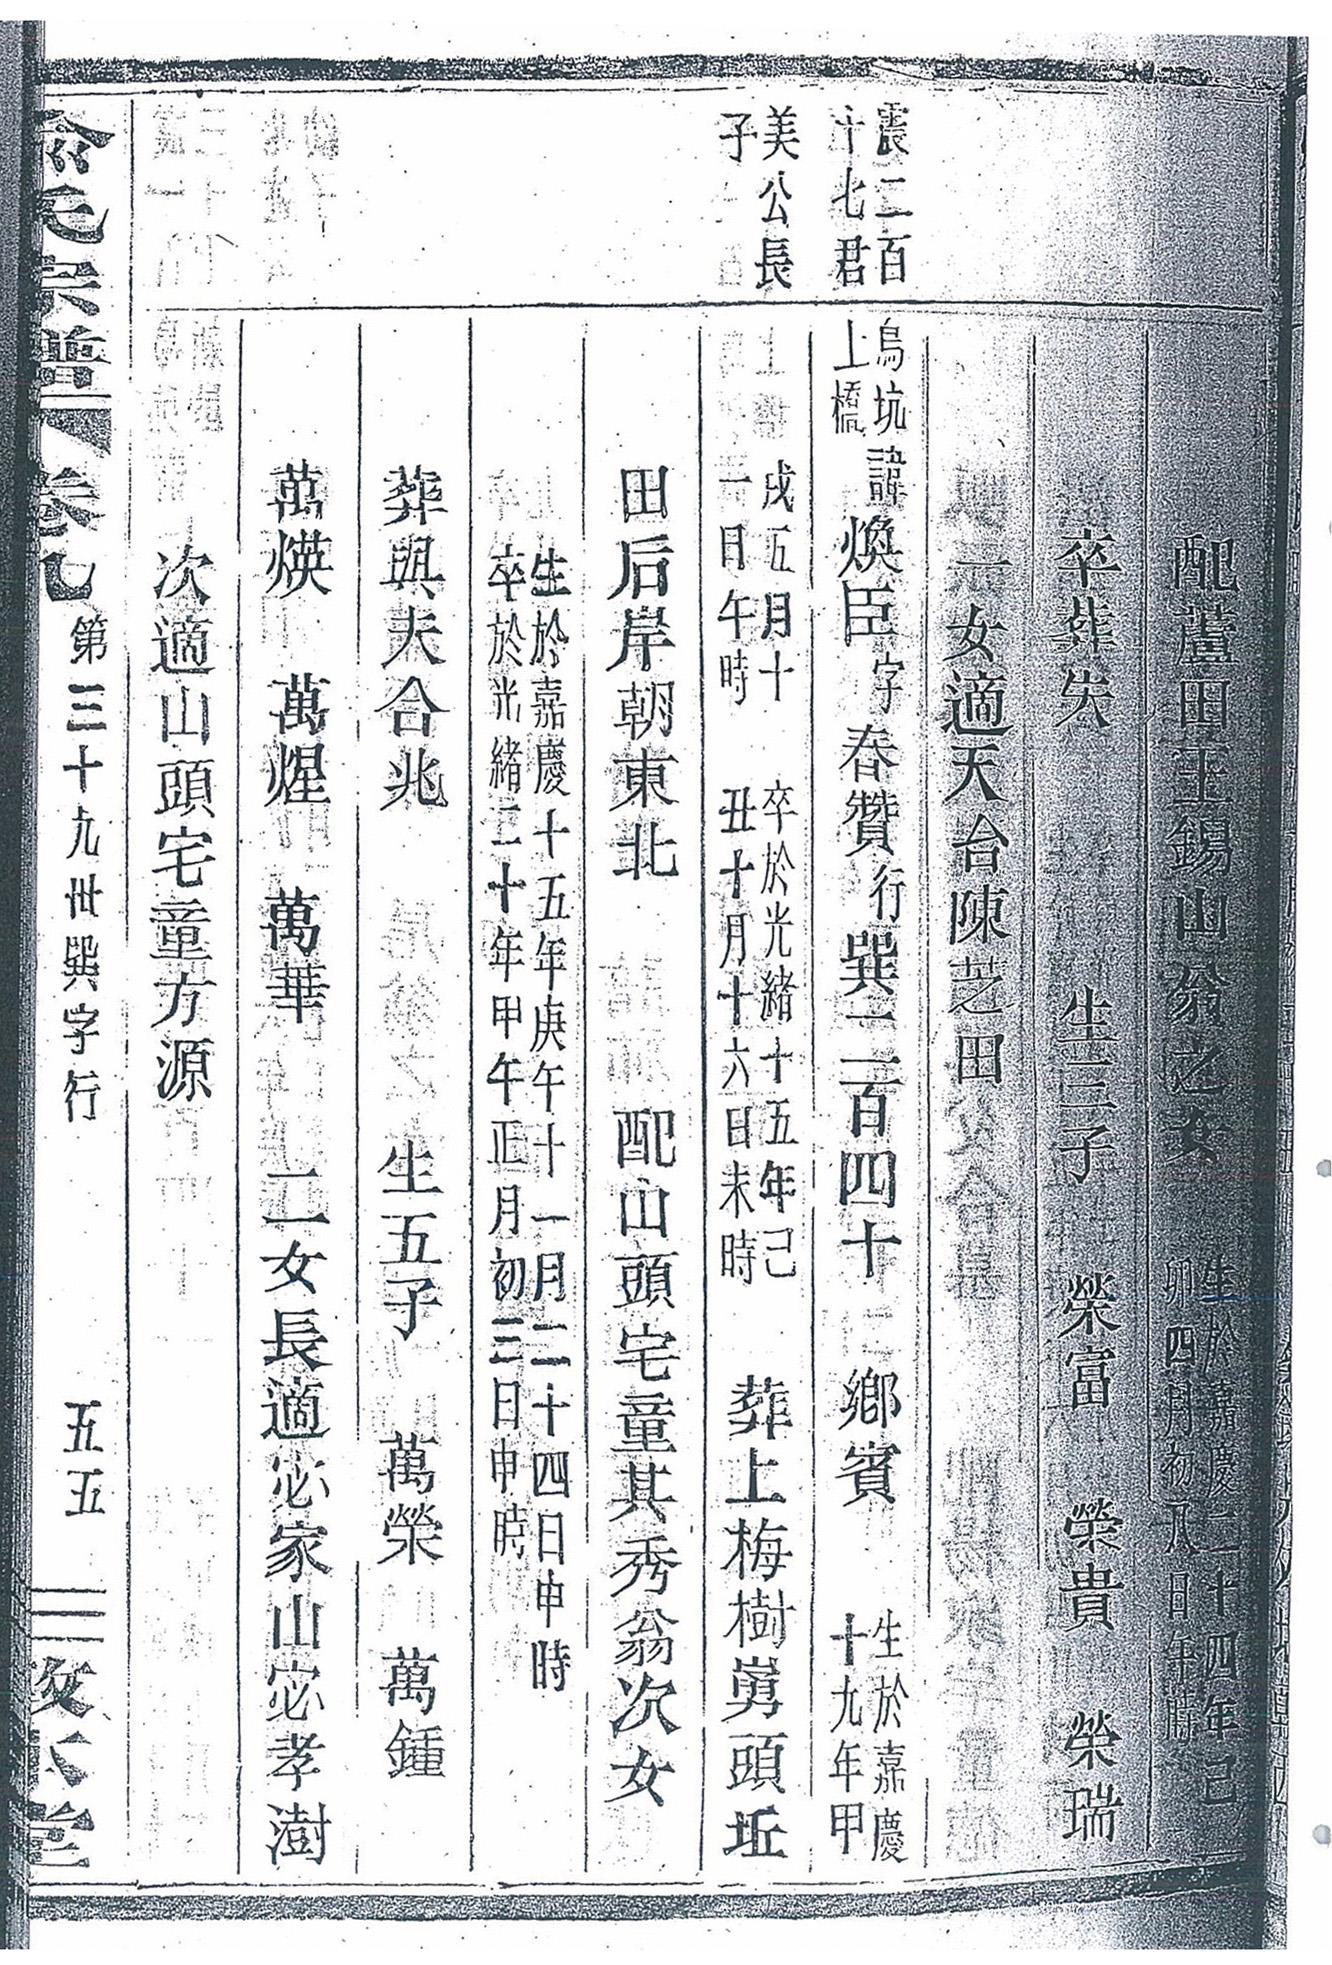 配蘆田王錫山翁之女 生於嘉慶二十四年己
卯四月初八日午時
卒葬失 生三子 榮富 榮貴 榮瑞
一女適天台陳芝田
震二百
十七君
烏坑
上橋
諱煥臣字春贊行巽二百四十 鄉賓 生於嘉慶
十九年甲
美公長
子
戌五月十
一日午時
卒於光緒十五年己
丑十月十六日未時
葬上梅樹嶴頭坵
田后岸朝東北 配山頭宅童其秀翁次女
生於嘉慶十五年庚午十一月二十四日申時
卒於光緒二十年甲午正月初三日申時
葬與夫合兆 生五子 萬榮 萬鍾
萬煐 萬煋 萬華 二女長適宓家山宓孝澍
次適山頭宅童方源
俞氏宗譜 卷九 第三十九世巽字行 五五